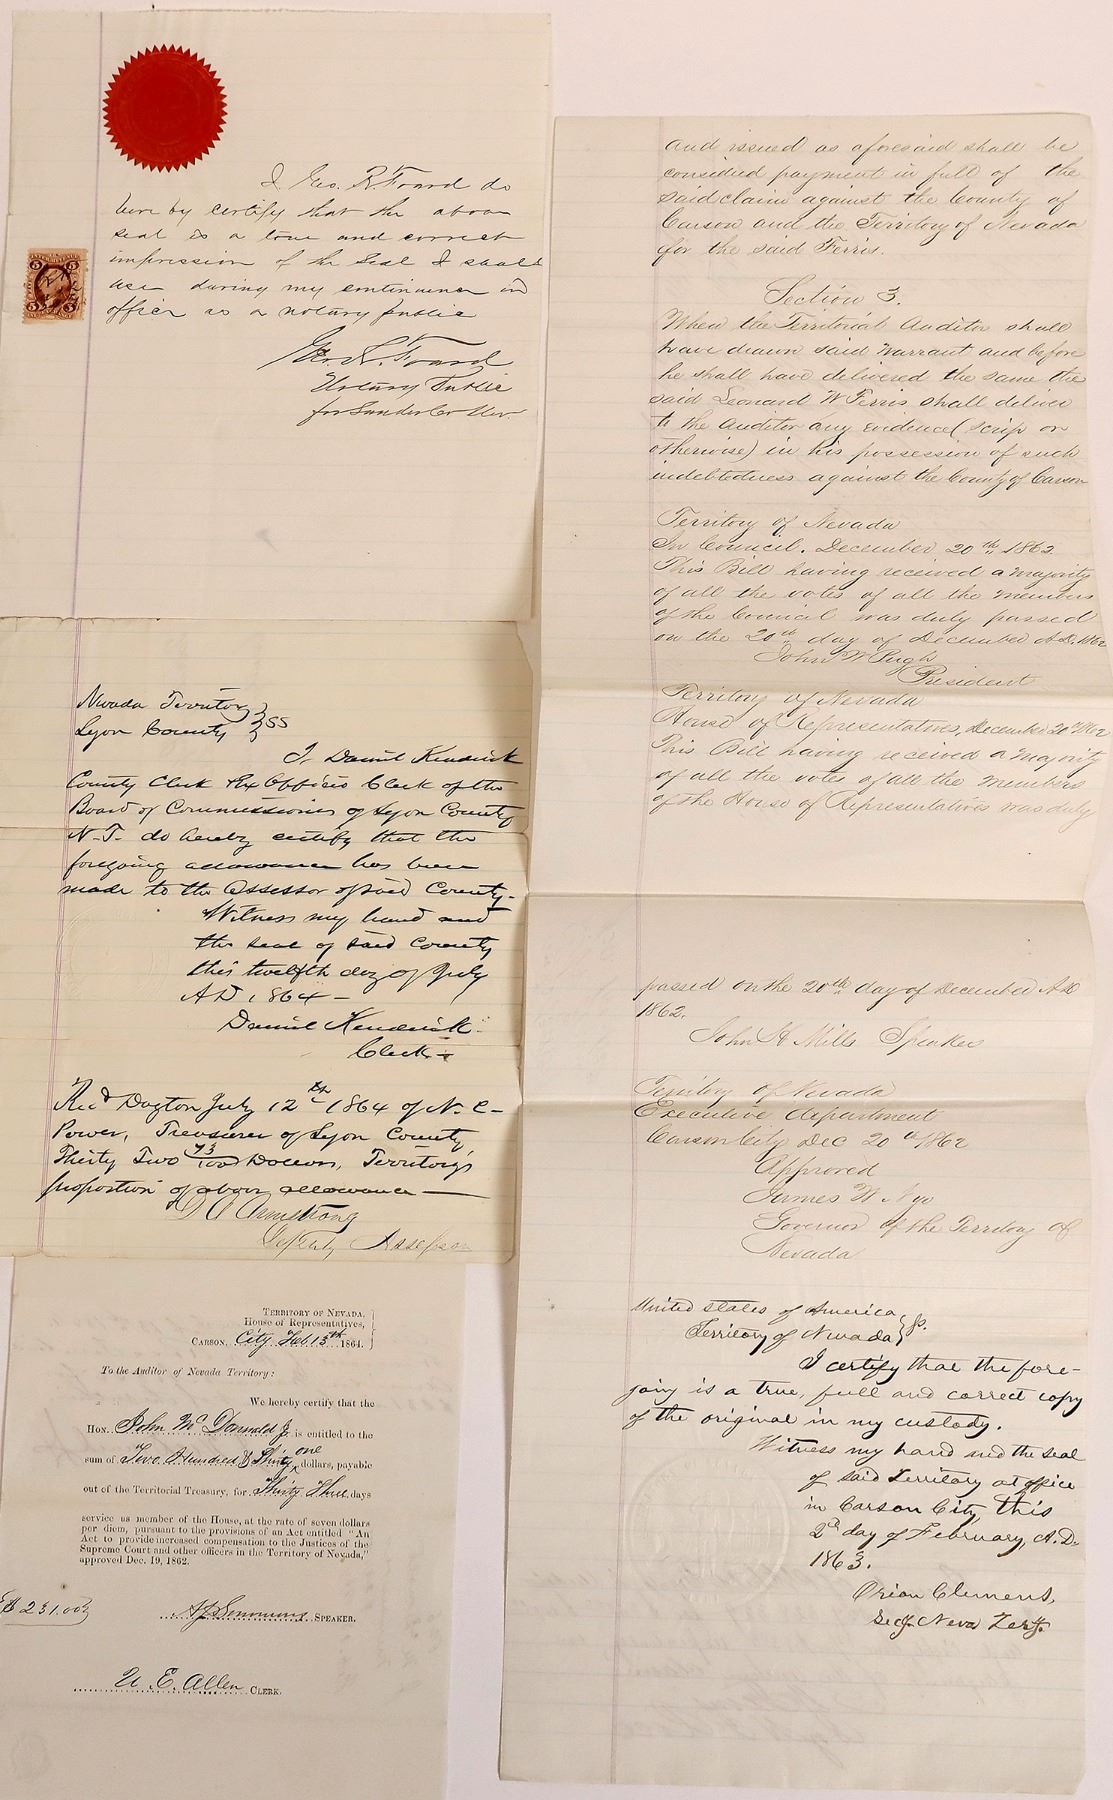 I Geo. R. Foard do
here by certify that the above
seal is a true and correct
impression of the Seal I shall
use during my continuance in
office as a notary public
Geo. R. Foard
Notary Public
for Lander Co Nev.
5
5
Nevada Territory } SS
Lyon County }
I, Daniel Kendrick
County Clerk & Ex Officio Clerk of the
Board of Commissioners of Lyon County
N.T. do hereby certify that the
foregoing allowance has been
made to the Assessor of said County.
Witness my hand and
the seal of said County
this twelfth day of July
A D 1864 –
Daniel Kendrick
Clerk
Rec'd Dayton July 12th 1864 of N. C.
Power, Treasurer of Lyon County,
Thirty Two 73/100 Dollars, Territory's
proportion of above allowance
D C Armstrong
Deputy Assessor
TERRITORY OF NEVADA,
House of Representatives,
CARSON, City Feb. 15th 1864.
To the Auditor of Nevada Territory:
We hereby certify that the
HON. John McDonald Jr. is entitled to the
sum of Two Hundred & Thirty one dollars, payable
out of the Territorial Treasury, for Thirty Three days
service as member of the House, at the rate of seven dollars
per diem, pursuant to the provisions of an Act entitled "An
Act to provide increased compensation to the Justices of the
Supreme Court and other officers in the Territory of Nevada,"
approved Dec. 19, 1862.
$231.00
A J Simmons SPEAKER.
U. E. Allen CLERK.
and issued as aforesaid shall be
considied payment in full of the
said claim against the County of
Carson and the Territory of Nevada
for the said Ferris.
Section 3.
When the Territorial Auditor shall
have drawn said Warrant and before
he shall have delivered the same the
said Leonard W Ferris shall deliver
to the Auditor any Evidence (scrip or
otherwise) in his possession of such
indebtedness against the County of Carson
Territory of Nevada
In Council. December 20th 1862
This Bill having received a majority
of all the votes of all the members
of the Council was duly passed
on the 20th day of December A.D. 1862
John W Pugh
President
Territory of Nevada
House of Representatives, December 20th 1862
This Bill having received a majority
of all the votes of all the members
of the House of Representatives was duly
passed on the 20th day of December AD
1862.
John H Mills Speaker
Territory of Nevada
Executive department
Carson City Dec 20th 1862
Approved
James W Nye
Governor of the Territory of
Nevada
United States of America }
Territory of Nevada } ss.
I certify that the fore-
going is a true, full and correct copy
of the original in my custody.
Witness my hand and the seal
of said Territory at office
in Carson City, this
2d day of February, A.D.
1863.
Orion Clemens,
Secy. Neva Terty.